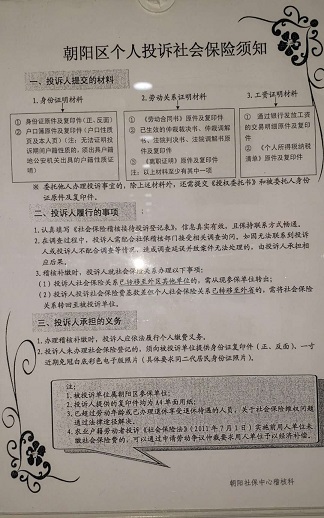 朝阳区个人投诉社会保险须知
一、投诉人提交的材料
1.身份证明材料
2.劳动关系证明材料
3.工资证明材料
① 身份证原件及复印件(正、反面)
② 户口簿原件及复印件(户口性质
页及本人页)(注:无法证明投
诉期间户籍性质的,须出具户籍
地公安机关出具的户籍性质证
明)
① 《劳动合同书》原件及复印件
② 已生效的仲裁裁决书、仲裁调解
书、法院判决书、法院调解书原
件及复印件
③ 《离职证明》原件及复印件
注:以上材料至少有其中一项
① 通过银行发放工资
的交易明细原件及复
印件
② 《个人所得税纳税
清单》原件及复印件
※ 委托他人办理投诉事宜的,除上述材料外,还需提交《授权委托书》和被委托人身份
证原件及复印件。
二、投诉人履行的事项
1.认真填写《社会保险稽核接待投诉登记表》,信息真实有效,且保持联系方式畅通。
2.在调查过程中,投诉人需配合社保稽核部门接受相关调查询问。如因无法联系到投诉
人或投诉人不配合调查等情况,造成调查延误并致案件无法处理的,由投诉人承担相
应后果。
3.稽核补缴时,投诉人就社会保险关系办理以下事项:
(1)投诉人社会保险关系已转移至外区其他单位的,需从现参保单位转出;
(2)投诉人投诉社会保险费基数差但个人社会保险关系已转移至外省的,需将社会保险
关系转回至被投诉单位。
三、投诉人承担的义务
1.办理稽核补缴时,投诉人应依法履行个人缴费义务。
2.投诉人未办理社会保险登记的,须向被投诉单位提供身份证复印件(正、反面)、一寸
近期免冠白底彩色电子版照片(具体要求同二代居民身份证照片)。
注:
1.被投诉单位属朝阳区参保单位。
2.投诉人提供的复印件均为A4单面用纸;
3.已超过劳动年龄或已办理退休享受退休待遇的人员,关于社会保险维权问题
通过法律途径解决。
4.农业户籍劳动者投诉《社会保险法》(2011年7月1日)实施前用人单位未
缴社会保险费的,可以通过申请劳动争议仲裁要求用人单位予以经济补偿。
朝阳社保中心稽核科